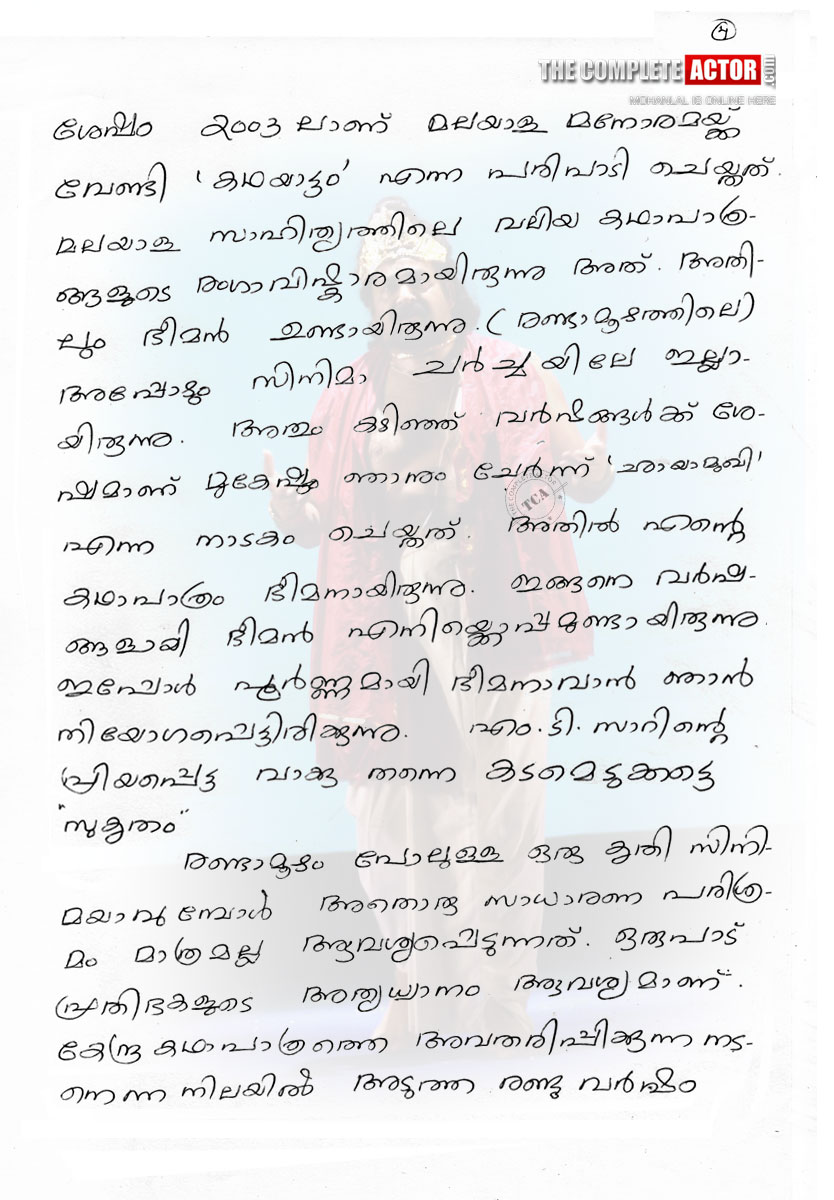 4
THE COMPLETE ACTOR .com
MOHANLAL IS ONLINE HERE
ശേഷം 2003 ലാണ് മലയാള മനോരമയ്ക്ക്
വേണ്ടി 'കഥയാട്ടം' എന്ന പരിപാടി ചെയ്തത്.
മലയാള സാഹിത്യത്തിലെ വലിയ കഥാപാത്ര-
ങ്ങളുടെ രംഗാവിഷ്കാരമായിരുന്നു അത്. അതി-
ലും ഭീമൻ ഉണ്ടായിരുന്നു. (രണ്ടാമൂഴത്തിലെ)
അപ്പോഴും സിനിമാ ചർച്ചയിലേ ഇല്ലാ-
യിരുന്നു. അതും കഴിഞ്ഞ് വർഷങ്ങൾക്ക് ശേ-
ഷമാണ് മുകേഷും ഞാനും ചേർന്ന് 'ഛായാമുഖി'
THE COMPLETE ACTOR TCA
എന്ന നാടകം ചെയ്തത്. അതിൽ എന്റെ
കഥാപാത്രം ഭീമനായിരുന്നു. ഇങ്ങനെ വർഷ-
ങ്ങളായി ഭീമൻ എനിയ്ക്കൊപ്പമുണ്ടായിരുന്നു.
ഇപ്പോൾ പൂർണ്ണമായി ഭീമനാവാൻ ഞാൻ
നിയോഗപ്പെട്ടിരിക്കുന്നു. എം.ടി. സാറിന്റെ
പ്രിയപ്പെട്ട വാക്കു തന്നെ കടമെടുക്കട്ടെ
"സുകൃതം"
രണ്ടാമൂഴം പോലുള്ള ഒരു കൃതി സിനി-
മയാവുമ്പോൾ അതൊരു സാധാരണ പരിശ്ര-
മം മാത്രമല്ല ആവശ്യപ്പെടുന്നത്. ഒരുപാട്
പ്രതിഭകളുടെ അത്യധ്വാനം ആവശ്യമാണ്.
കേന്ദ്ര കഥാപാത്രത്തെ അവതരിപ്പിക്കുന്ന നട-
നെന്ന നിലയിൽ അടുത്ത രണ്ടു വർഷം